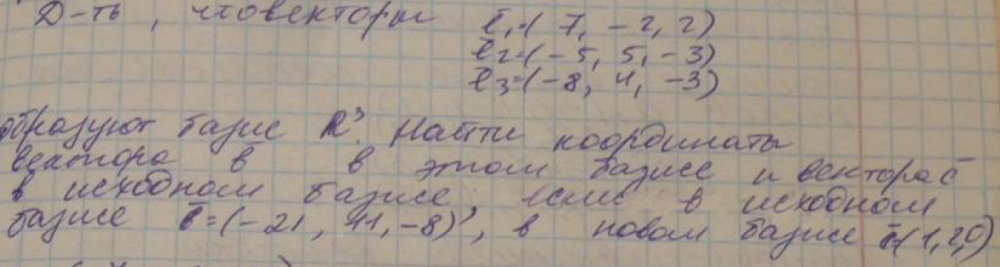 Д-ть, что векторы ē₁=(7, -2, 2)
ē₂=(-5, 5, -3)
ē₃=(-8, 4, -3)
образуют базис R³. Найти координаты
вектора в̄ в этом базисе и вектора с̄
в исходном базисе, если в исходном
базисе в̄=(-21, 11, -8)', в новом базисе с̄(1,2,0)